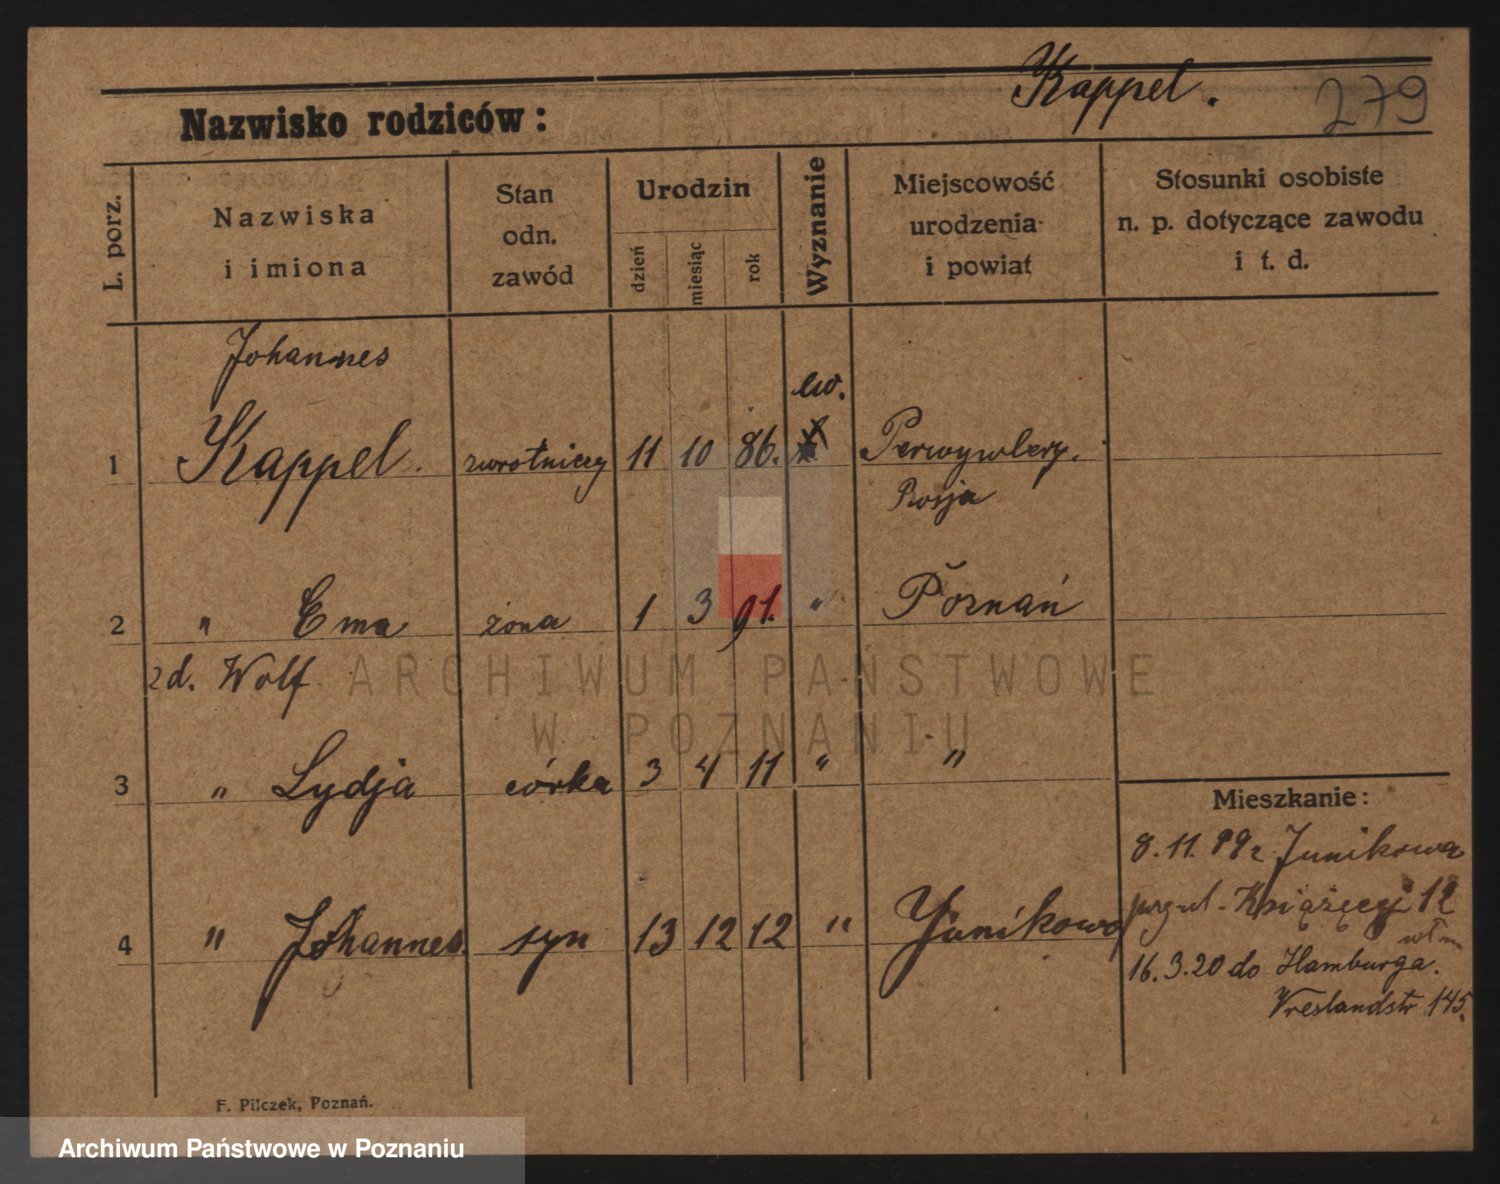 Kappel.
279
Nazwisko rodziców:
L. porz.
Nazwiska
i imiona
Stan
odn.
zawód
Urodzin
dzień
miesiąc
rok
Wyznanie
Miejscowość
urodzenia
i powiat
Stosunki osobiste
n. p. dotyczące zawodu
i t. d.
Johannes
ew.
1 Kappel. zwrotniczy 11 10 86.
Rosja
2 " Ema żona 1 3 91. " Poznań
zd. Wolf
3 " Lydja córka 3 4 11 " "
4 " Johannes. syn 13 12 12 " Junikowo
Mieszkanie:
8.11. Junikowa
Książęcej 12
16.3.20 do Hamburga.
145.
F. Pilczek, Poznań.
ARCHIWUM PAŃSTWOWE
W POZNANIU
Archiwum Państwowe w Poznaniu